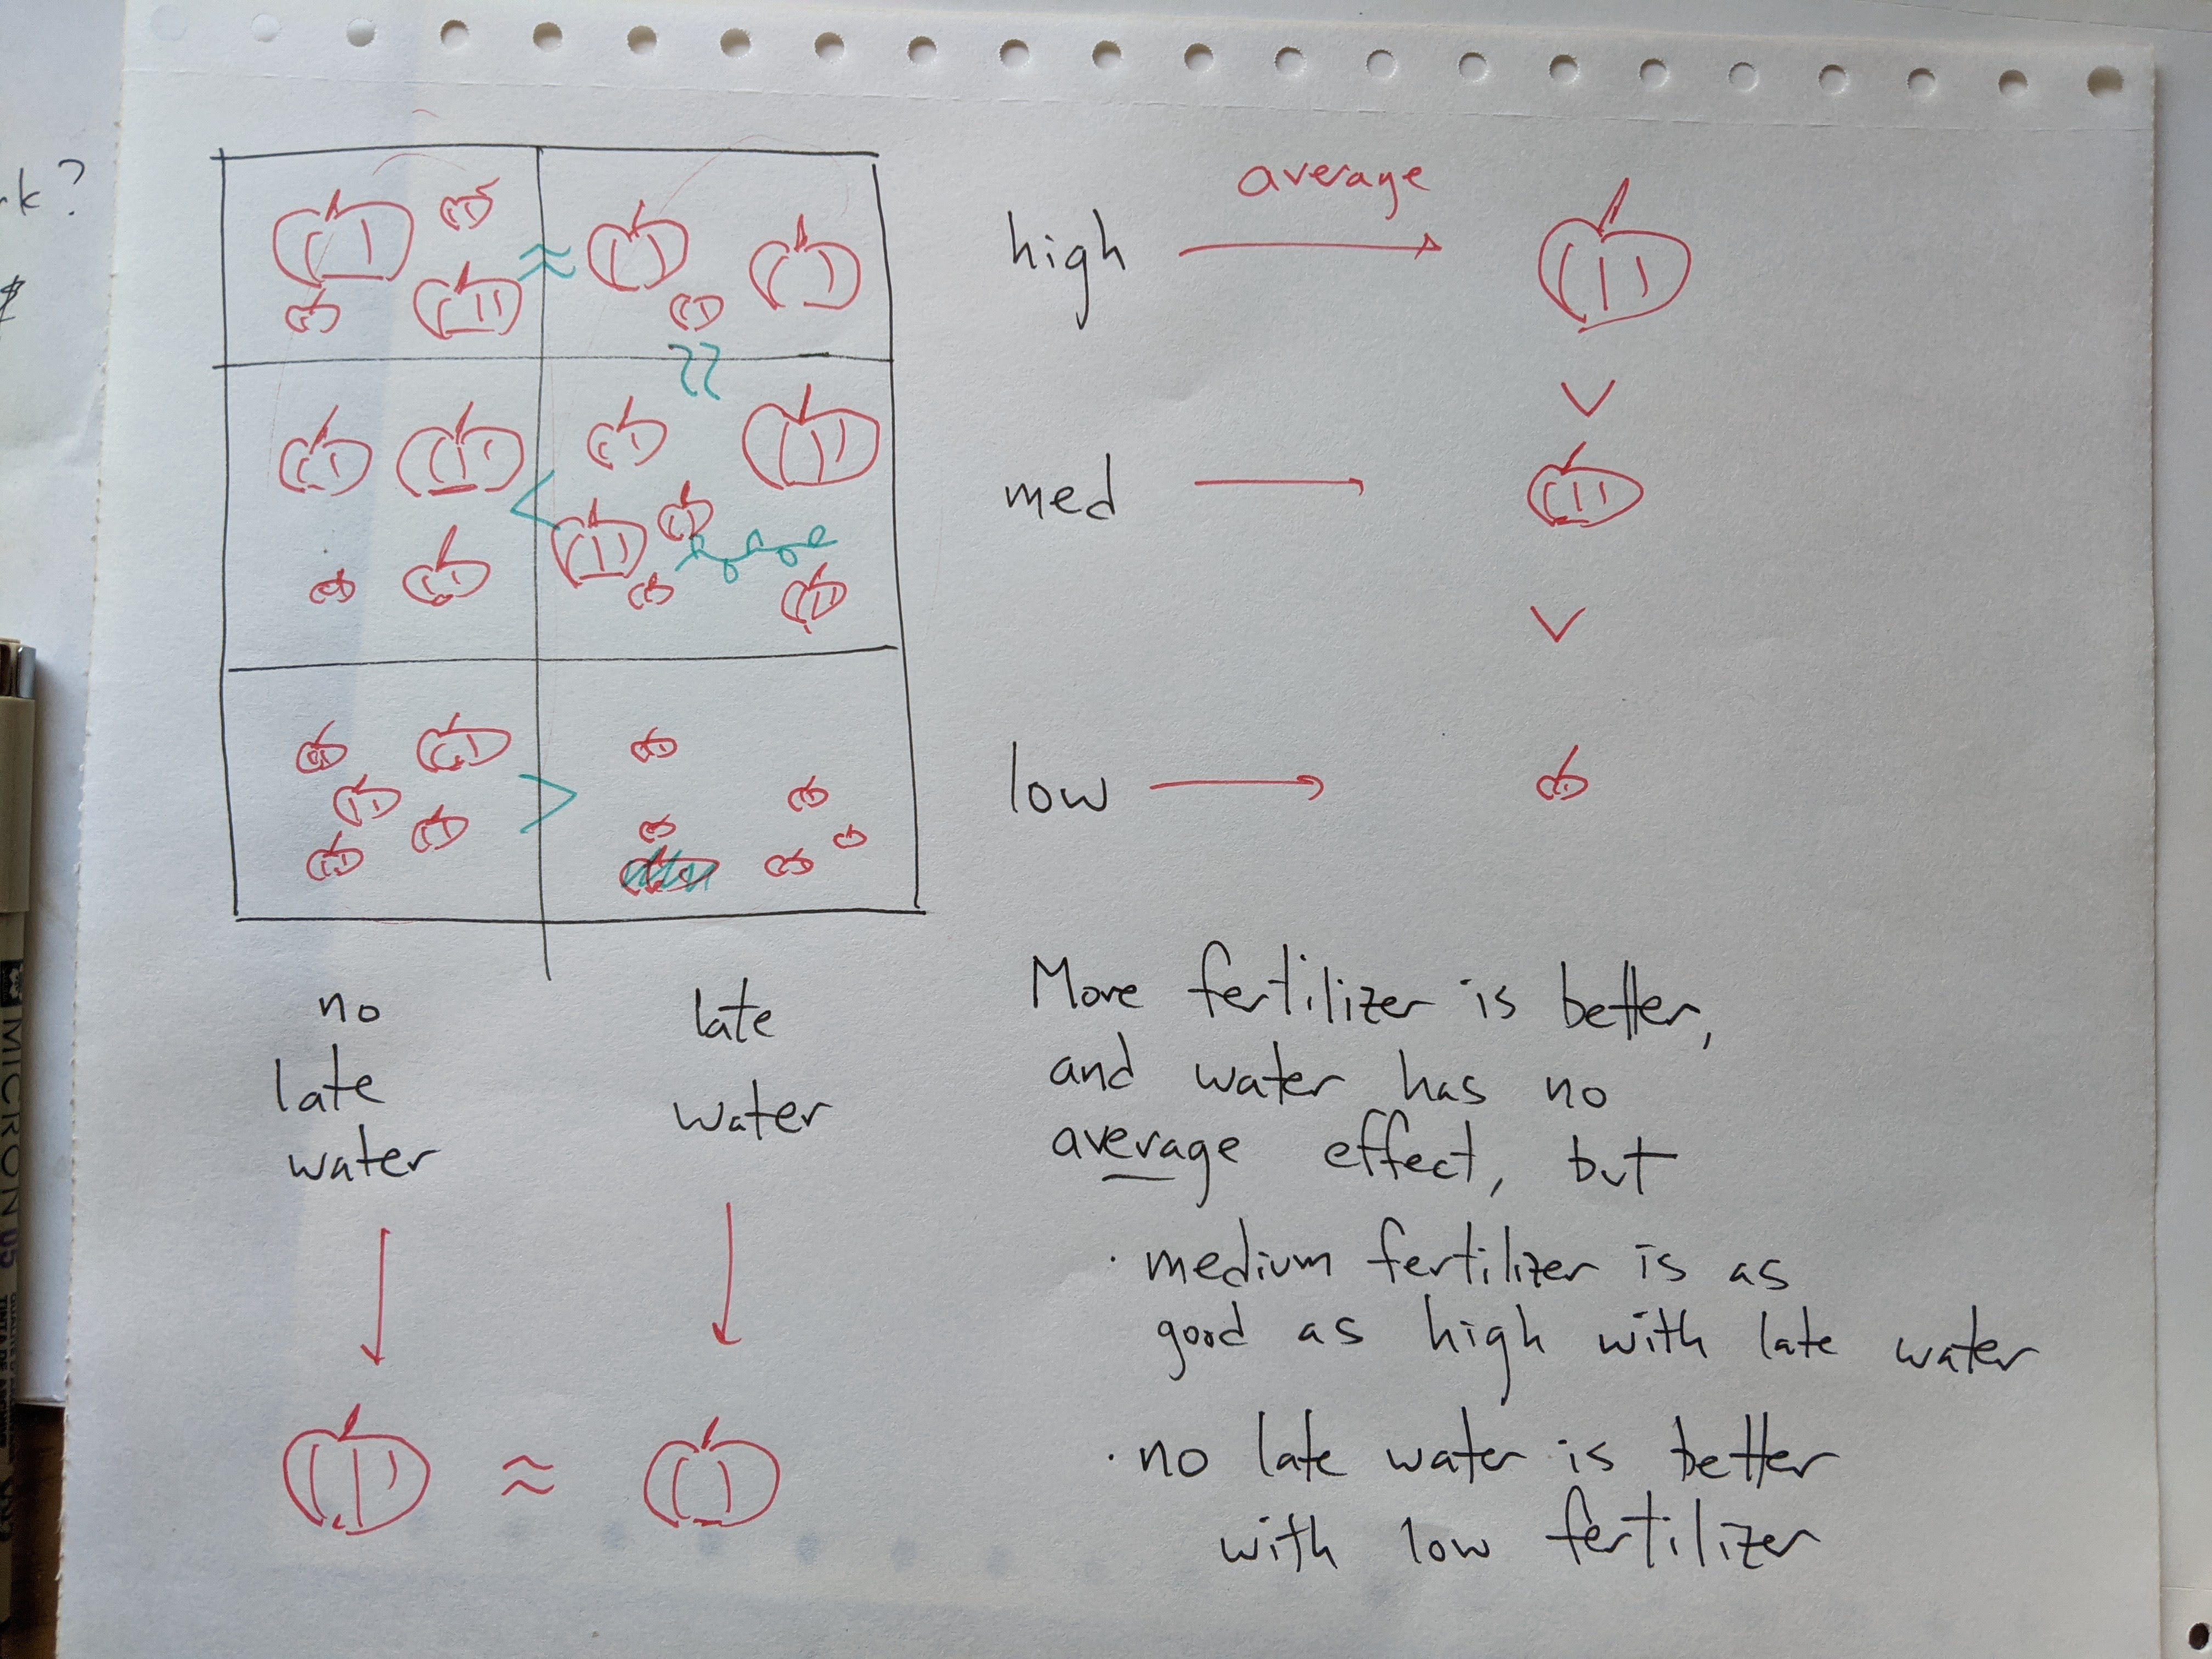 rk?
high
average
med
low
no
late
water
late
water
More fertilizer is better,
and water has no
average effect, but
· medium fertilizer is as
good as high with late water
· no late water is better
with low fertilizer
MICRON 05